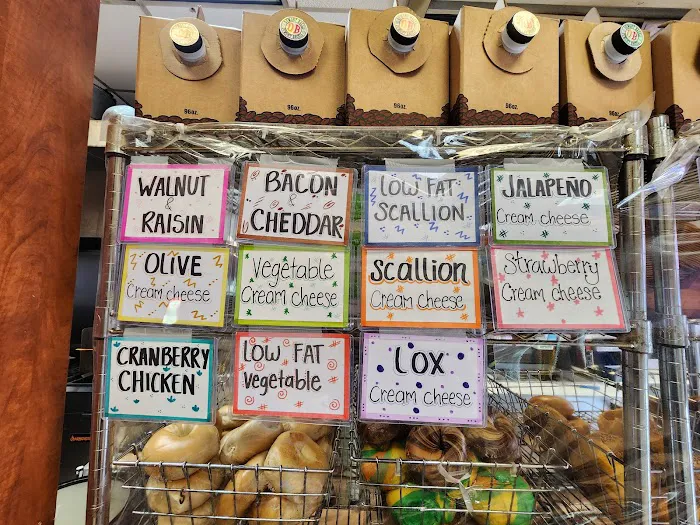 96oz.
96oz.
96oz.
96oz.
96oz.
WALNUT
&
RAISIN
BACON
&
CHEDDAR
LOW FAT
SCALLION
JALAPEÑO
Cream cheese
OLIVE
Cream cheese
Vegetable
Cream cheese
Scallion
Cream cheese
Strawberry
Cream cheese
CRANBERRY
CHICKEN
LOW FAT
vegetable
LOX
Cream cheese